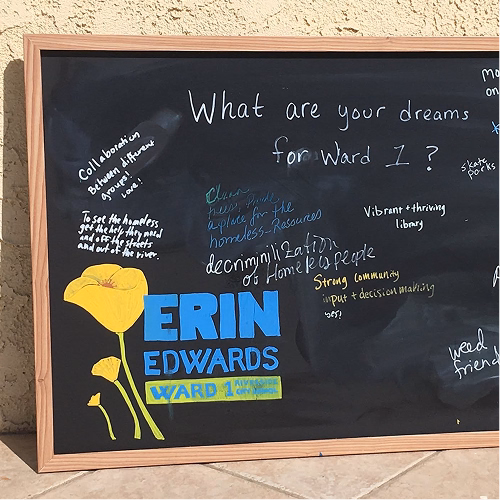 What are your dreams
for Ward 1?
Collaboration
Between different
groups!
Love!
To see the homeless
get the help they need
and off the streets
and out of the river.
a place for the
homeless-Resources
decriminilization
of Homeless people
Vibrant + thriving
library
Strong community
input + decision making
yes!
skate
parks
mo
on
weed
friend
ERIN
EDWARDS
WARD 1
RIVERSIDE
CITY COUNCIL